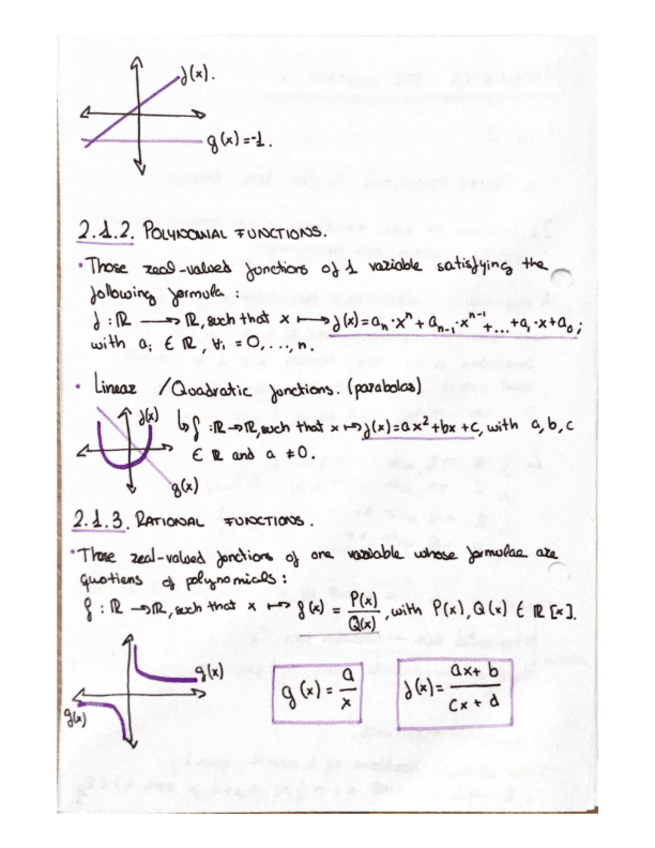 f(x).
g(x)=-1.
2.1.2. POLYNOMIAL FUNCTIONS.
• Those real-valued functions of 1 variable satisfying the
following formula :
f : ℝ → ℝ, such that x ↦ f(x) = aₙ·xⁿ + aₙ₋₁·xⁿ⁻¹ +...+a₁·x+a₀;
with aᵢ ∈ ℝ, ∀i = 0, ..., n.
• Linear / Quadratic functions. (parabolas)
f(x)
↳ f : ℝ→ℝ, such that x ↦ f(x)=ax²+bx+c, with a, b, c
∈ ℝ and a ≠ 0.
g(x)
2.1.3. RATIONAL FUNCTIONS.
• Those real-valued functions of one variable whose formulae are
quotiens of polynomials :
f : ℝ → ℝ, such that x ↦ f(x) = P(x)/Q(x), with P(x), Q(x) ∈ ℝ [x].
g(x)
g(x)
g(x) = a/x
f(x) = ax+b/cx+d